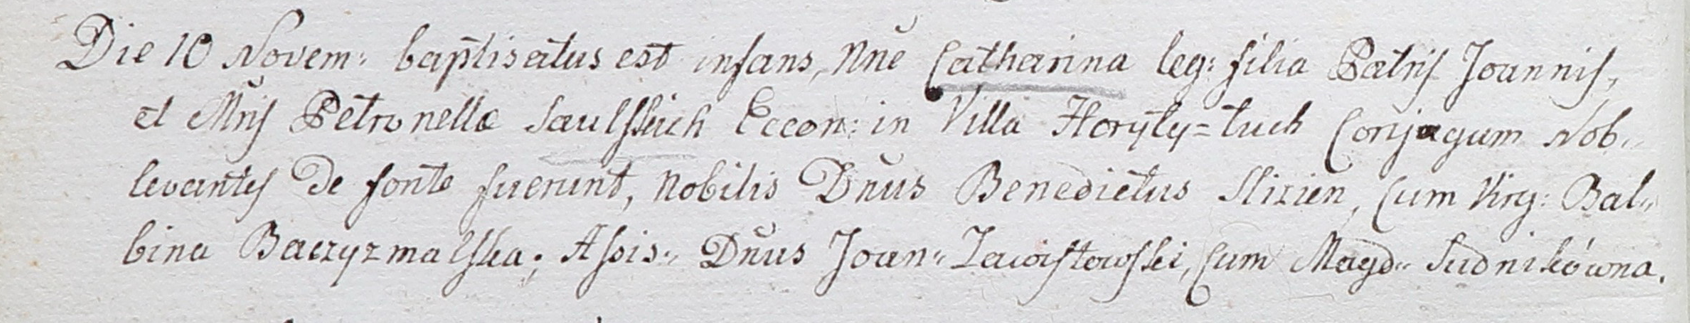 Die 10 Novem: baptisatus est infans, Nn̄e Catharina leg: filia Patris Joannis,
et Mr̄is Petronellæ Saulskich Eccon: in Villa Horyty=tuch Conjugum Nob„
levantes de fonte fuerunt, Nobilis Dn̄us Benedictus Slizien, cum Virg: Bal„
bina Baczyzmalska; Assis„ Dn̄us Joan„ Zawistowski, cum Magd„ Sudnikówna.